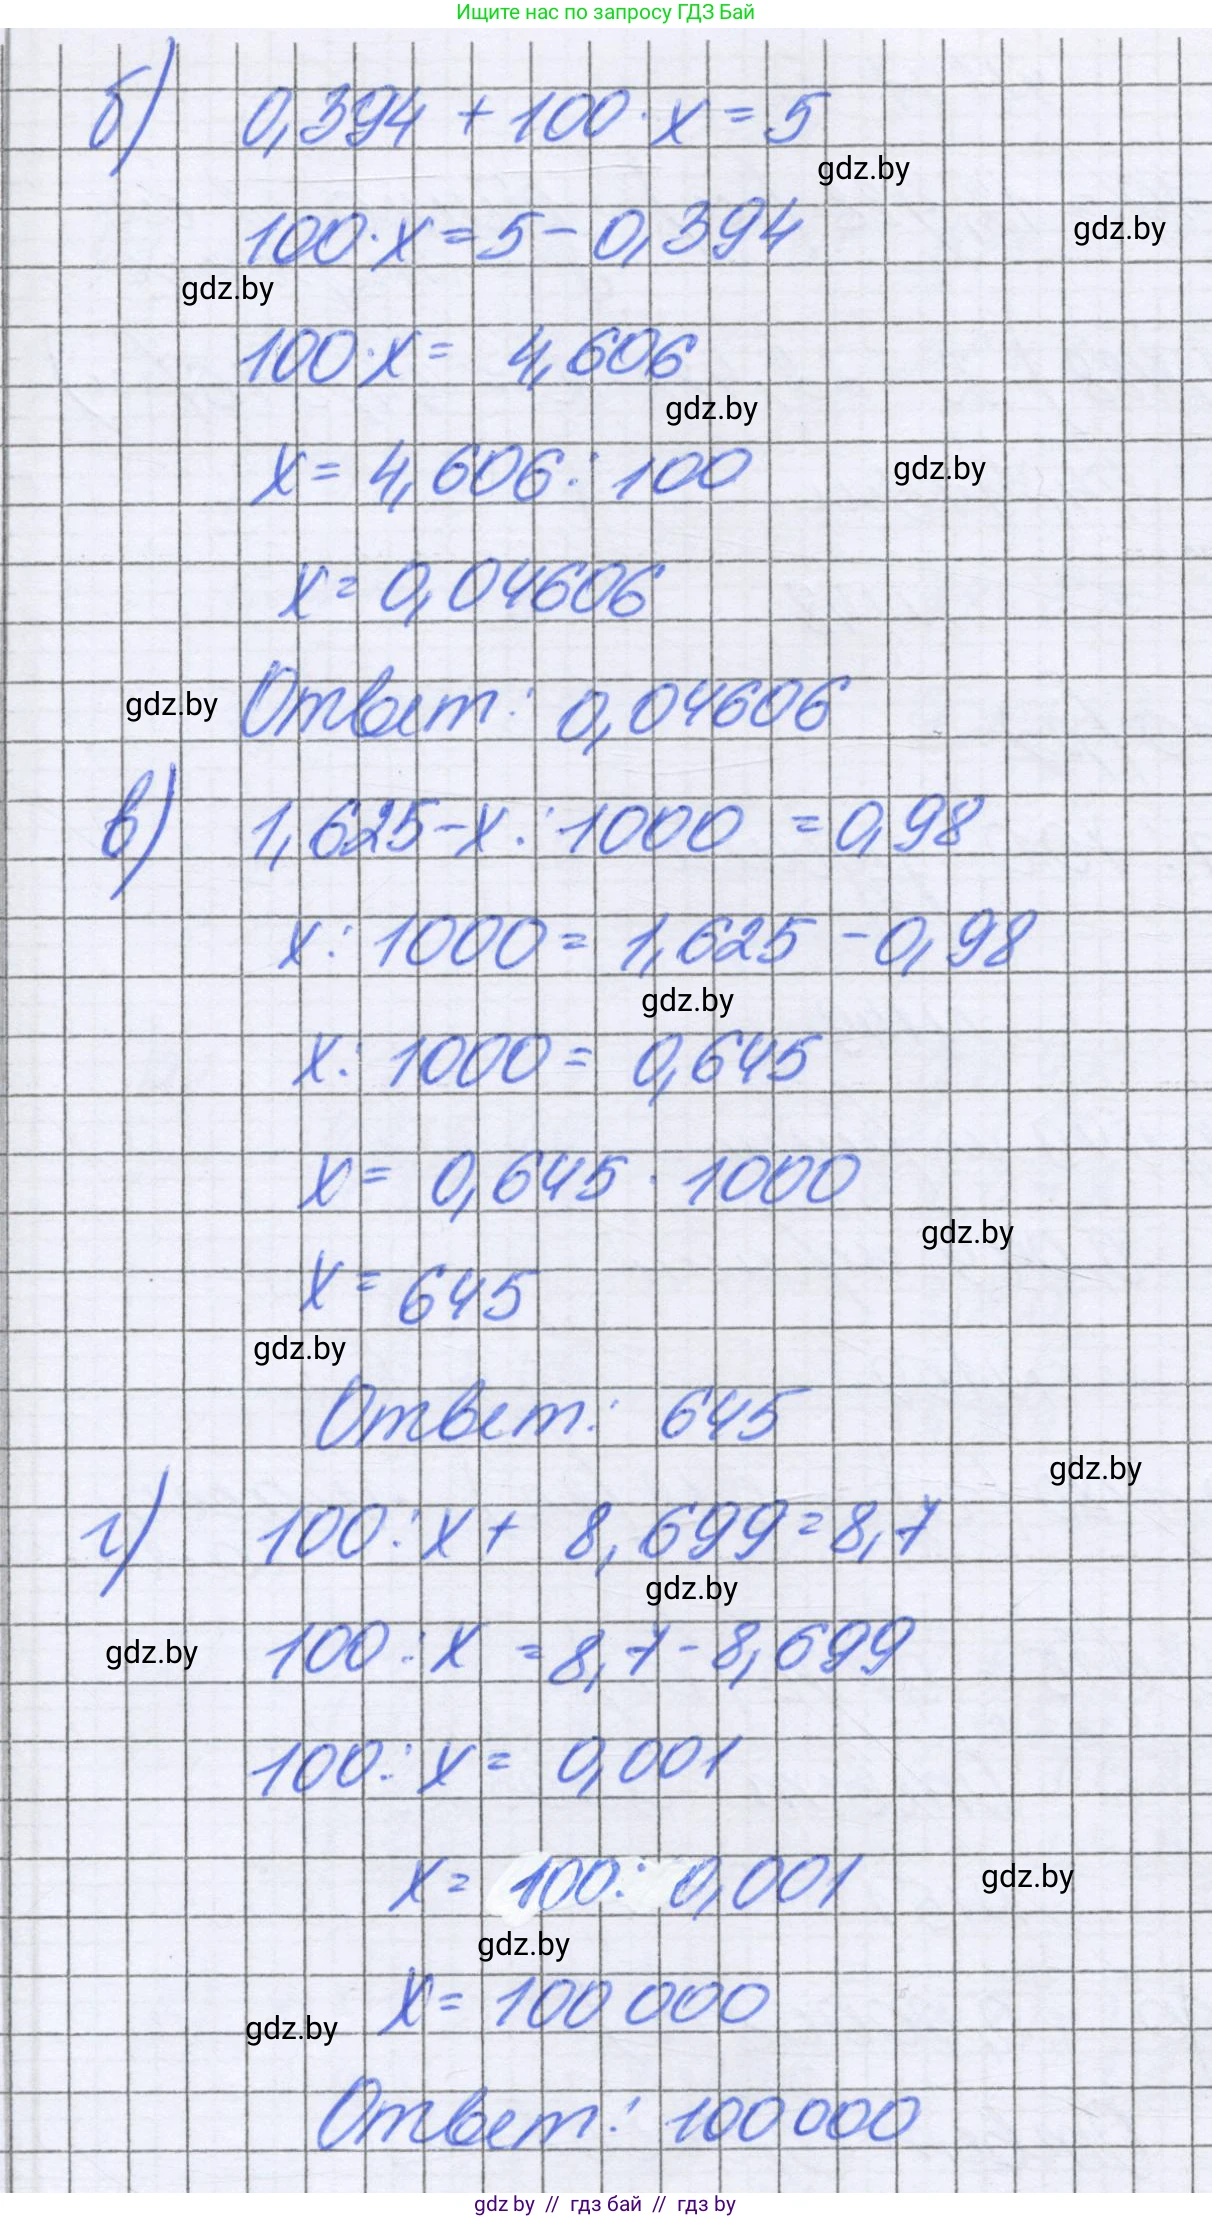 Ищите нас по запросу ГДЗ Бай
б) 0,394 + 100 · x = 5
gdz.by
100 · x = 5 - 0,394
gdz.by
gdz.by
100 · x = 4,606
gdz.by
x = 4,606 : 100
gdz.by
x = 0,04606
gdz.by
Ответ: 0,04606
в) 1,625 - x : 1000 = 0,98
x : 1000 = 1,625 - 0,98
gdz.by
x : 1000 = 0,645
x = 0,645 · 1000
gdz.by
x = 645
gdz.by
Ответ: 645
gdz.by
г) 100 : x + 8,699 = 8,7
gdz.by
100 : x = 8,7 - 8,699
gdz.by
100 : x = 0,001
x = 100 : 0,001
gdz.by
gdz.by
x = 100 000
gdz.by
Ответ: 100 000
gdz by // гдз бай // гдз by